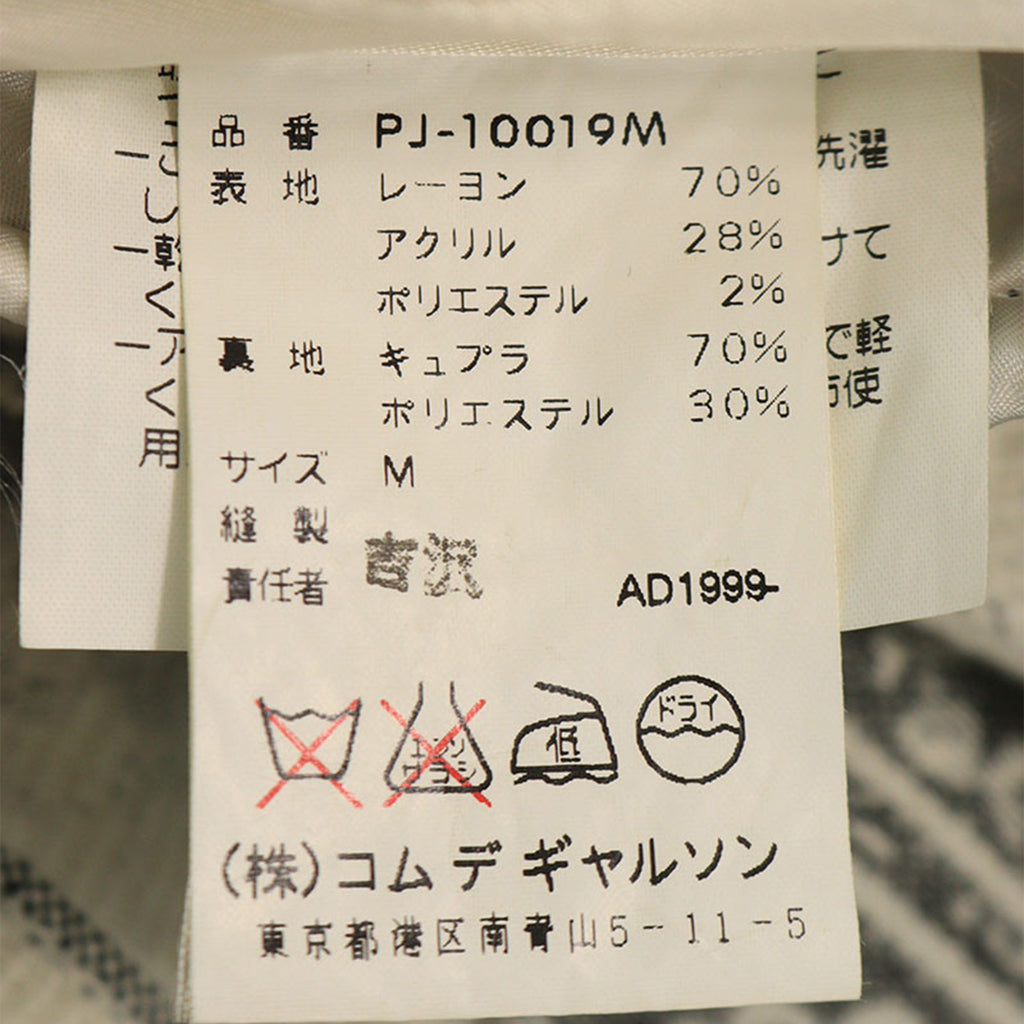 品番 PJ-10019M
表地 レーヨン 70%
アクリル 28%
ポリエステル 2%
裏地 キュプラ 70%
ポリエステル 30%
サイズ M
縫製
責任者 吉沢
AD1999
エンソ
サラシ
低
ドライ
(株)コムデギャルソン
東京都港区南青山5-11-5
ーこ
し
ー乾
く
ーア
く
用
洗濯
けて
で軽
布使